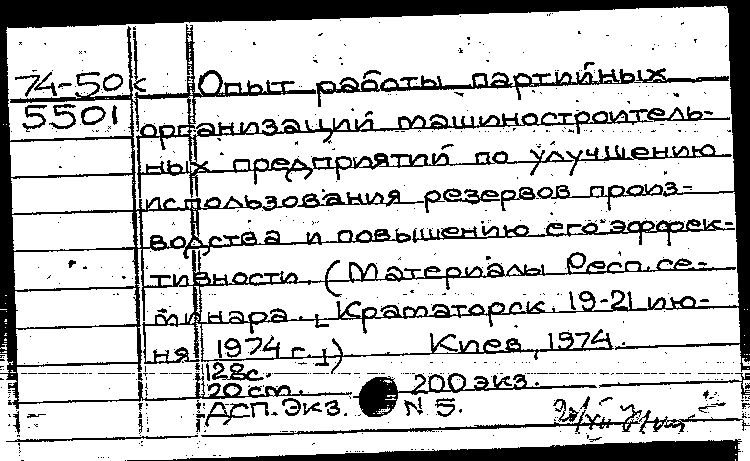 74-50к Опыт работы партийных
5501 организаций машиностроитель-
ных предприятий по улучшению
использования резервов произ-
водства и повышению его эффек-
тивности. (Материалы Респ. се-
минара. [Краматорск. 19-21 ию-
ня 1974 г.]) Киев, 1974.
128с.
20 cm. 200 экз.
ДСП. Экз. N 5.